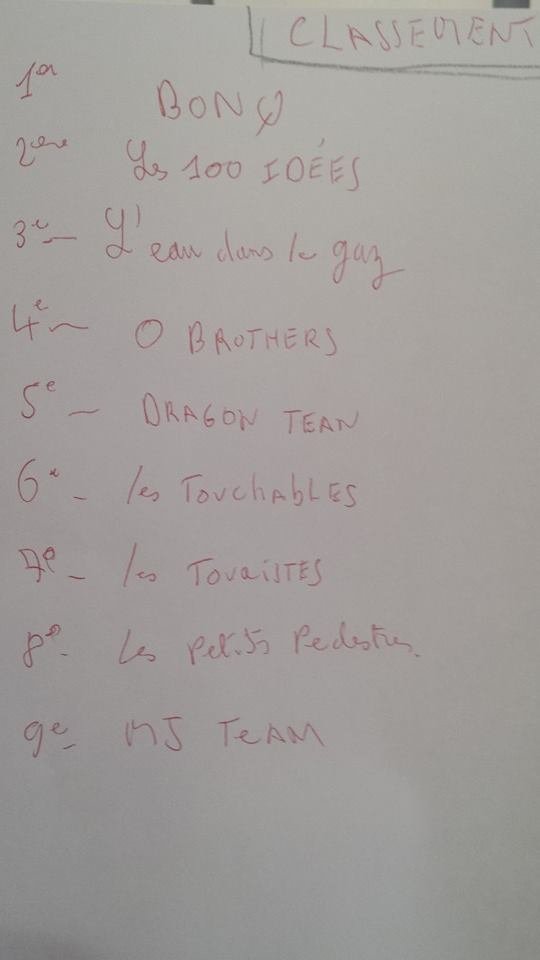 CLASSEMENT
1er BONQ
2ème Les 100 IDÉES
3e L'eau dans le gaz
4e O BROTHERS
5e - DRAGON TEAM
6e - les TouchabLES
7e - les TouRiSTES
8e - Les Petits Pedestres
9e - MJ TEAM